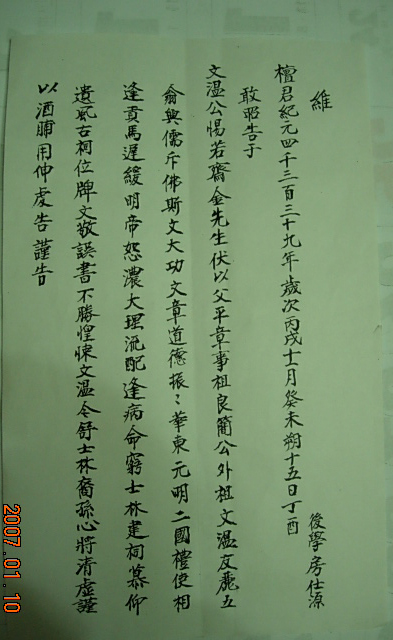 維
檀君紀元四千三百三十九年歲次丙戌十一月癸未朔十五日丁酉
後學房仕源
敢昭告于
文溫公惕若齋金先生伏以父平章事祖良簡公外祖文溫友麗五
翁興儒斥佛斯文大功文章道德振〻華東元明二國禮使相
逢貢馬遲緩明帝怒濃大理流配逢病命窮士林建祠慕仰
遺風古祠位牌文敬誤書不勝惶悚文溫今舒士林裔孫心將清虛謹
以酒脯用伸虔告謹告
2007.01.10